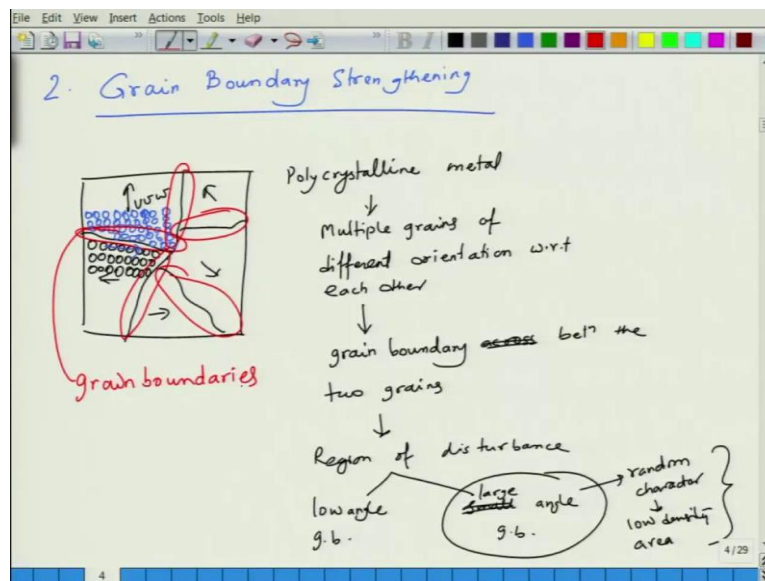 File Edit View Insert Actions Tools Help
2. Grain Boundary Strengthening
Polycrystalline metal
Multiple grains of
different orientation w.r.t
each other
grain boundary across betn the
two grains
Region of disturbance
low angle
g.b.
large
small angle
g.b.
random
character
low density
area
uvw
grain boundaries
4/29
4